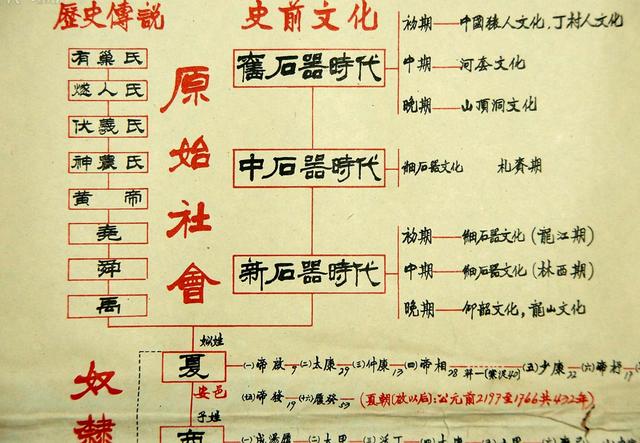 歷史傳說
史前文化
有巢氏
燧人氏
伏羲氏
神農氏
黄帝
堯
舜
禹
原始社會
舊石器時代
初期——中國猿人文化,丁村人文化
中期——河套文化
晚期——山頂洞文化
中石器時代
細石器文化 札賚期
新石器時代
初期——細石器文化(龍江期)
中期——細石器文化(林西期)
晚期——仰韶文化,龍山文化
奴隸
姒姓
夏
安邑
㈠帝啟 9 ㈡太康 29 ㈢仲康 13 ㈣帝相 28 ㈤少康 22 ㈥帝杼
帝發 19 履癸 53 (夏朝(啟以后):公元前2197至1766共432年)
子姓
商
㈠成湯 ㈡太甲 ㈢沃丁